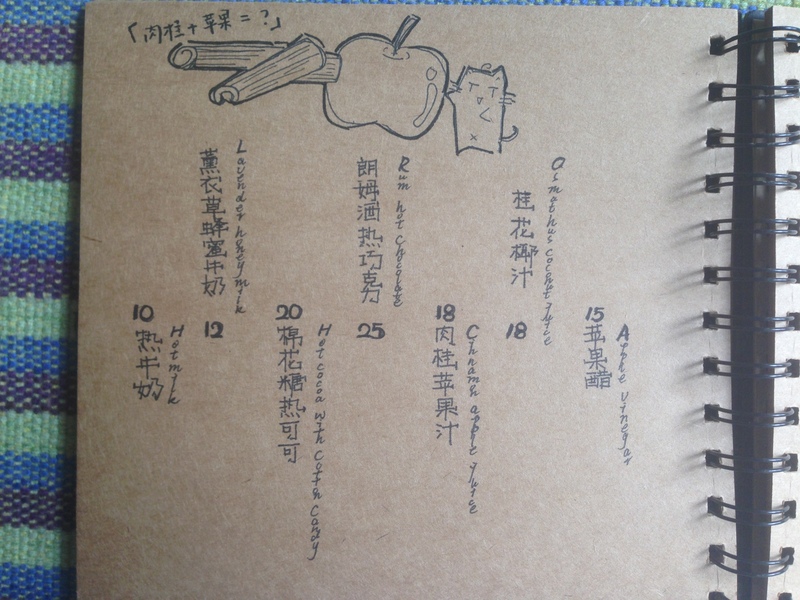 「肉桂+苹果=?」
10
热牛奶
Hot milk
薰衣草蜂蜜牛奶
Lavender honey milk
12
20
棉花糖热可可
Hot cocoa with cottn candy
朗姆酒热巧克力
Rum hot chocolate
25
18
肉桂苹果汁
Cinnamn apple juice
桂花椰汁
Osmathus coconut juice
18
15
苹果醋
Apple vinegar